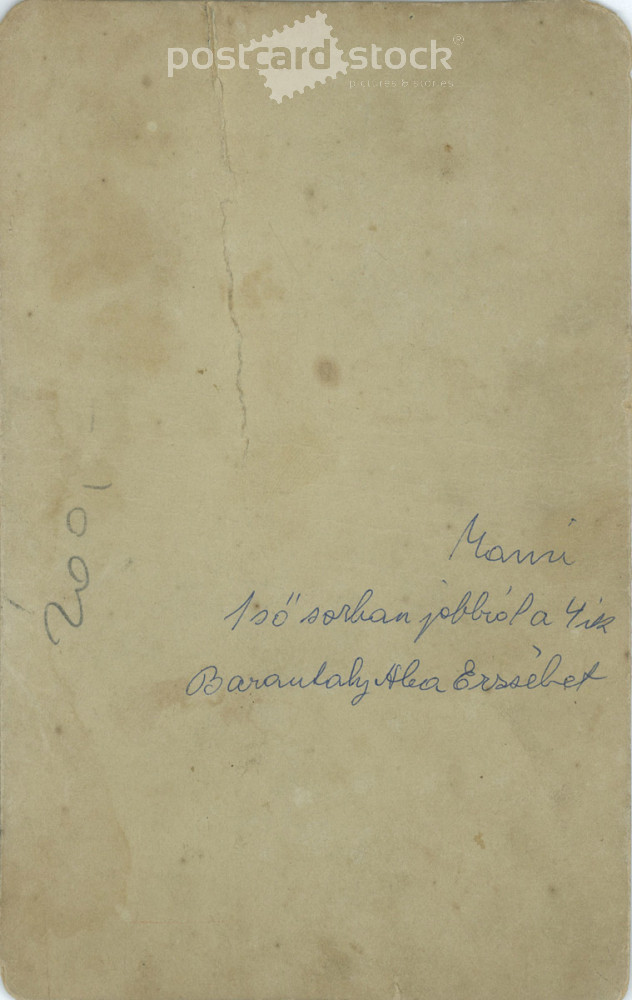 postcard stock
pictures & stories
Mami
1ső sorban jobbról a 4ik
Barantaly Aba Erzsébet
200,-